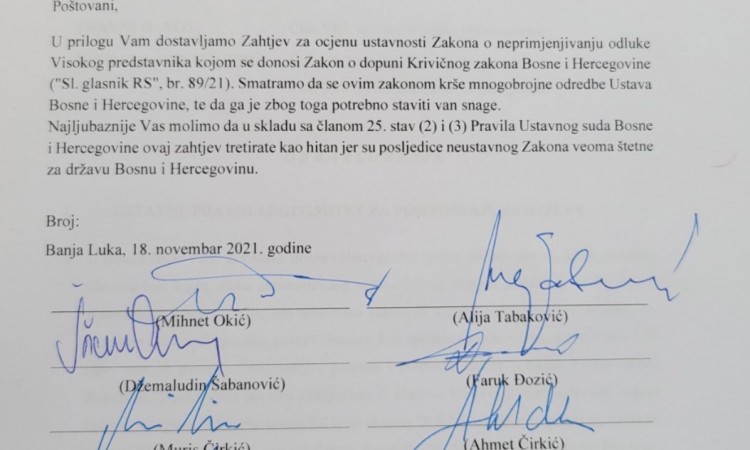 Poštovani,
U prilogu Vam dostavljamo Zahtjev za ocjenu ustavnosti Zakona o neprimjenjivanju odluke
Visokog predstavnika kojom se donosi Zakon o dopuni Krivičnog zakona Bosne i Hercegovine
("Sl. glasnik RS", br. 89/21). Smatramo da se ovim zakonom krše mnogobrojne odredbe Ustava
Bosne i Hercegovine, te da ga je zbog toga potrebno staviti van snage.
Najljubaznije Vas molimo da u skladu sa članom 25. stav (2) i (3) Pravila Ustavnog suda Bosne
i Hercegovine ovaj zahtjev tretirate kao hitan jer su posljedice neustavnog Zakona veoma štetne
za državu Bosnu i Hercegovinu.
Broj:
Banja Luka, 18. novembar 2021. godine
(Mihnet Okić) (Alija Tabaković)
(Džemaludin Šabanović) (Faruk Đozić)
(Muris Čirkić) (Ahmet Čirkić)